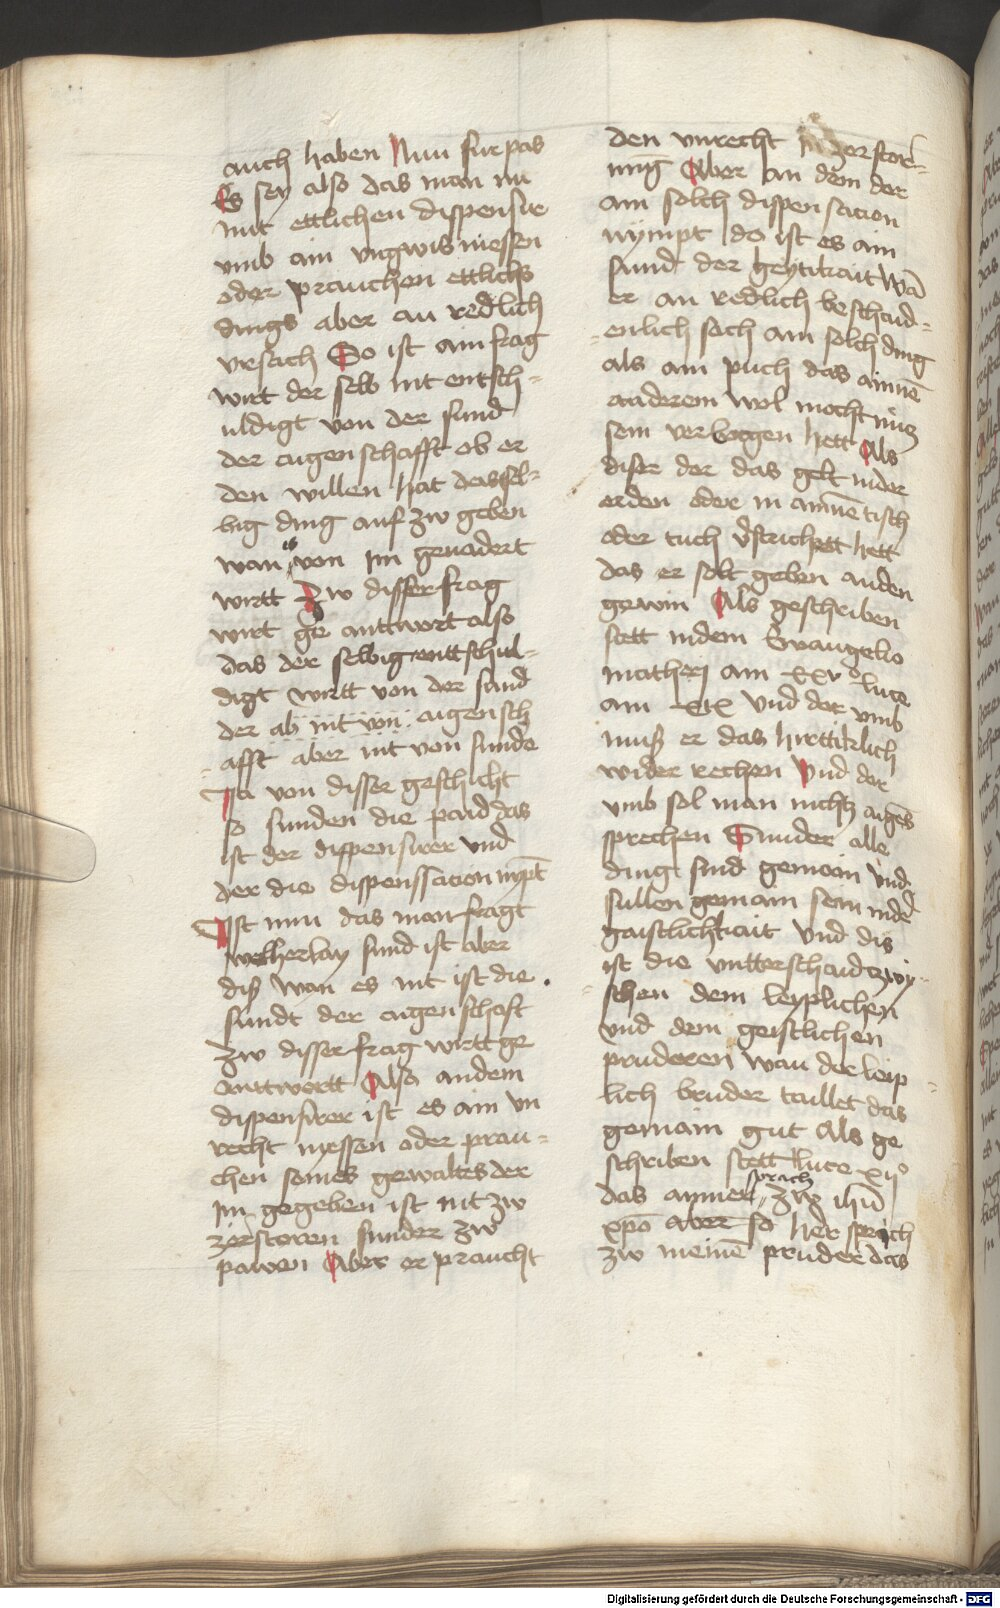 auch haben Nun fur pas
Es sey also das man im
mit ettlichen dispensir
umb ain ungwis niessen
oder prauchen ettlichs
dings aber an redlich
ursach So ist ain frag
wirt der selb nit entsch-
uldigt von der sund
der aigenschafft ob er
den willen hat dassel-
big ding auf zw geben
wan es von im genadert
wirtt Zw disser frag
wirt ge anttwort also
das der selbig enttschul-
digt wirtt von der sund
der ab nit von aigensch
afft aber nit von sunde
Ja von disser geschicht
so sunden die paid das
ist der dispensirer und
der die dispenssacion nypt
Ist nun das man fragt
welherlay sund ist aber
diß wan es nit ist die
sundt der aigenschaft
zw disser frag wirtt ge
anttwortt Also an dem
dispensirer ist es ain un
recht niessen oder prau-
chen seines gewaltes der
im gegeben ist nit zw
zerstoren sunder zw
pawen Aber er praucht
den unrecht in zerstor-
nūg Aber an dem der
ain solch dispensacion
nympt do ist es ain
sund der geytikait wā
er an redlich beschaid-
enlich sach ain solch ding
als ain puch das ainnē
anderem wol mocht nucz
sein verborgen hett Als
diser der das gelt in der
erden oder in ainnē tisch
oder tuch v̄strichtt hett
das er solt geben an den
gewin Als geschriben
stett in dem Evangelio
mathei am xxvᵒ luce
am xix Und dar umb
muß er das hirttiklich
wider rechen Und dar
umb sol man nichtz aigēs
sprechen Sunder alle
ding sind gemain und
sullen gemain sein in der
gaistlichkait Und dis
ist die untterschaid zwy-
schen dem leyplichen
und dem geistlichen
pruderen wan der leip
lich bruder taillet das
gemain gut Als ge
schriben stett luce xijᵒ
das ainner sprach zw ihū
xpō aber so her sprich
zw meinē pruder das
Digitalisierung gefördert durch die Deutsche Forschungsgemeinschaft - DFG